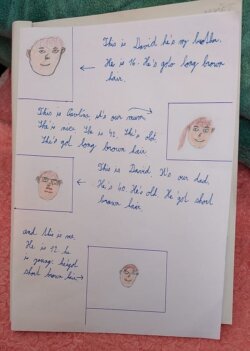 This is David he's my brother.
He is 16. He's goto long brown
hair.
This is Carolin, it's our mum
She is nice. He is 42. She's old.
She's got long brown hair
This is David. It's our dad.
He's 40. He's old. He got short
brown hair
and this is me.
He is 12 he
is young. he got
short brown hair